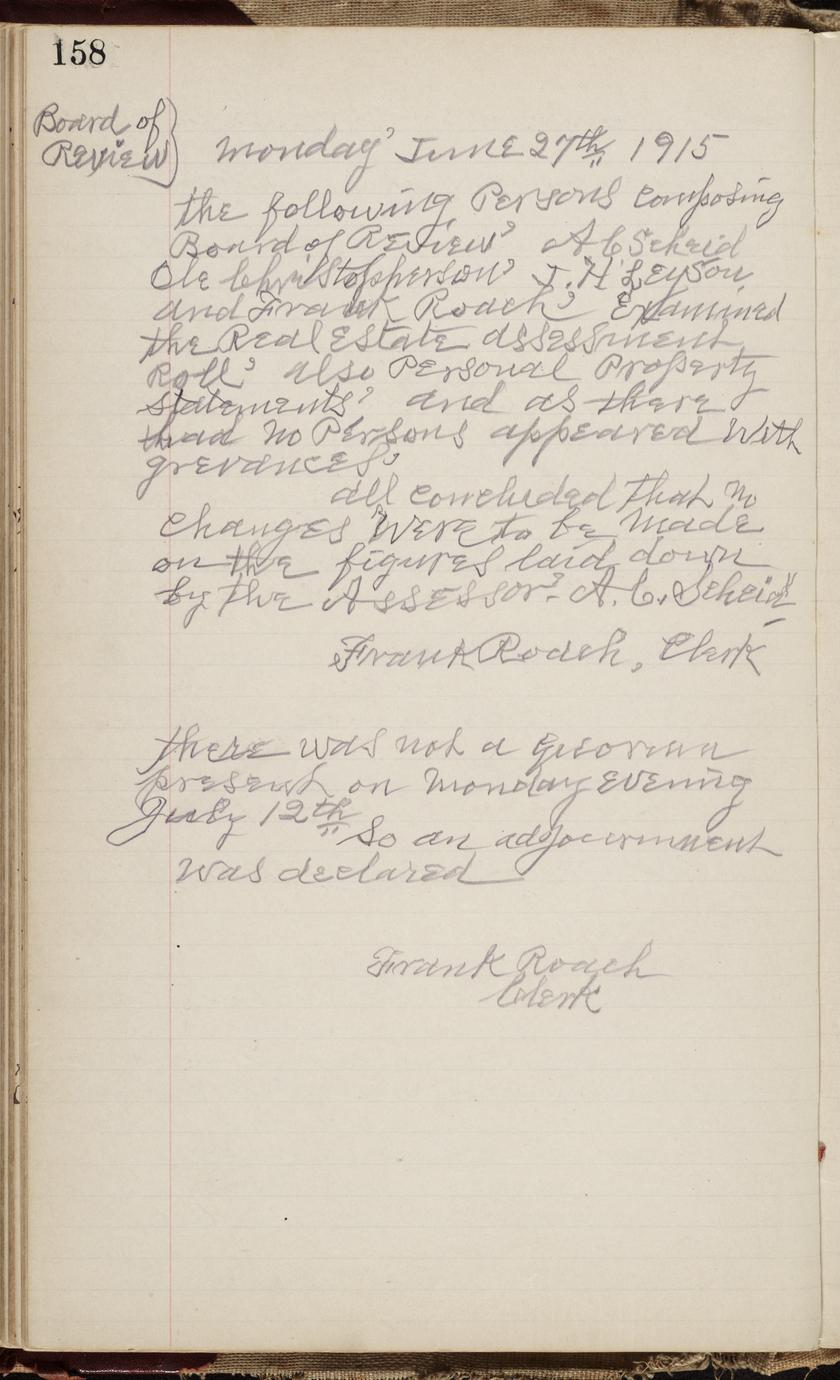 158
Board of
Review
Monday' June 27th 1915
the following Persons Composing
Board of Review' A C Scheid
Ole Christopherson' J. H Leyson
and Frank Roach' Examined
the Real Estate assessment
Roll' also Personal Property
Statements' and as there
had no Persons appeared With
grevances'
all concluded that no
changes Were to be Made
on the figures laid down
by the Assessor. A. C. Scheid
Frank Roach, Clerk
there was not a
present on Monday Evening
July 12th So an adjournment
was declared
Frank Roach
Clerk